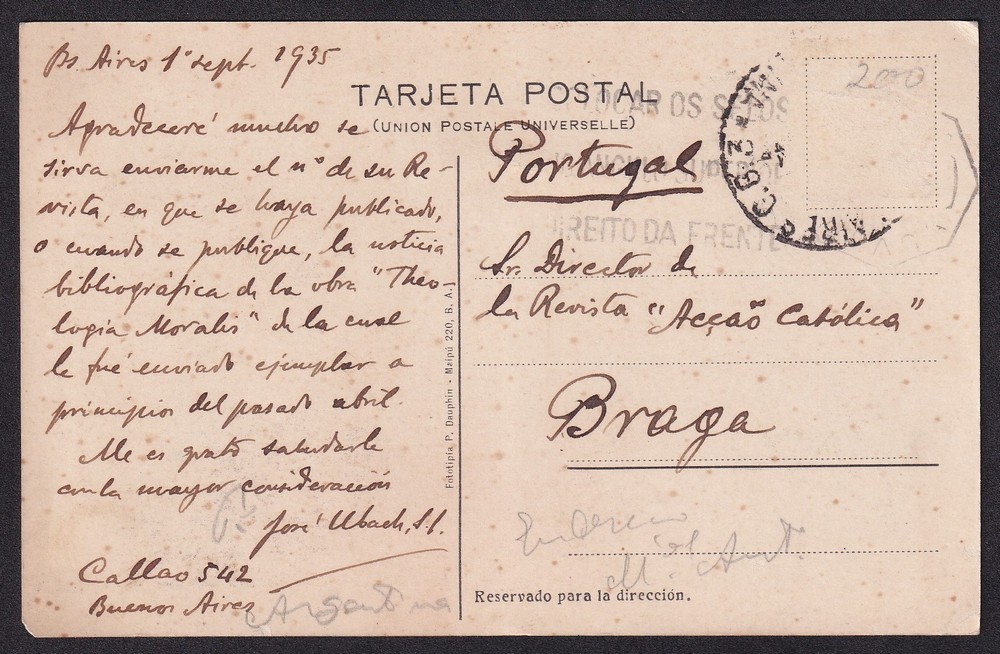 Bs Aires 1° sept. 1935
TARJETA POSTAL
(UNION POSTALE UNIVERSELLE)
Agradeceré mucho se
sirva enviarme el nº de su Re-
vista, en que se haya publicado,
o cuando se publique, la noticia
bibliográfica de la obra "Theo-
logia Moralis" de la cual
le fué enviado ejemplar a
principios del pasado abril.
Me es grato saludarle
con la mayor consideración
José Ubach, S.I.
Callao 542
Buenos Aires
Argentina
Fototipia P. Dauphin - Maipú 220, B. A.
2000
COLOCAR OS SELOS
NO ANGULO SUPERIOR
DIREITO DA FRENTE
AIRES C. 63
Portugal
Sr. Director de
la Revista "Acção Católica"
Braga
Reservado para la dirección.